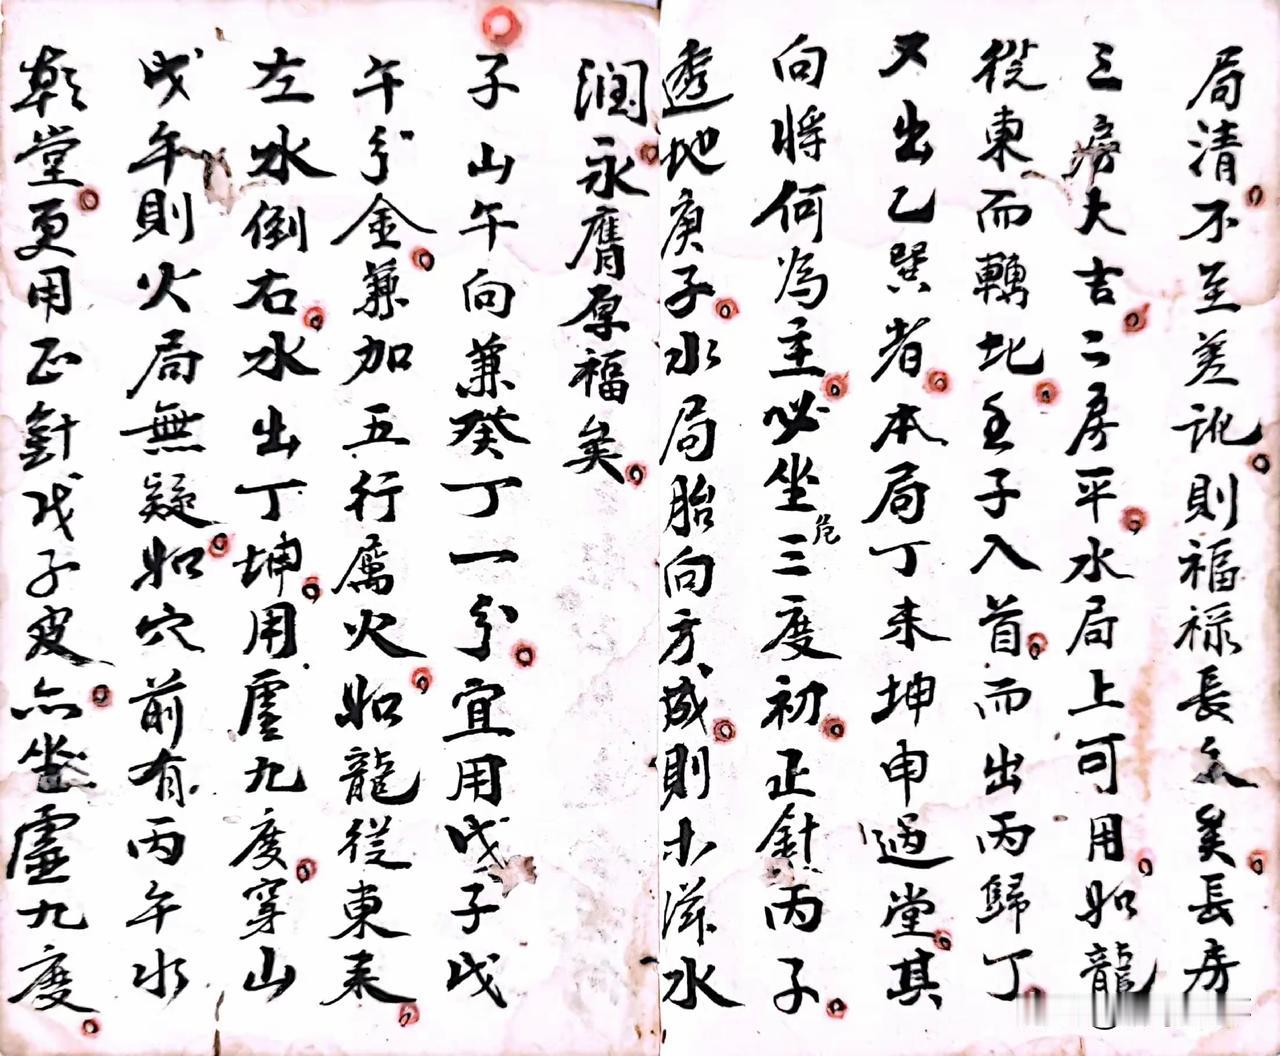 局清不至差訛則福祿長久矣長房
三房大吉二房平水局上可用如龍
從東而轉北壬子入首而出丙歸丁
又出乙巽者本局丁未坤申過堂其
向將何為主必坐危三度初正針丙子
透地庚子水局胎向方成則木滋水
潤永膺厚福矣
子山午向兼癸丁一分宜用戊子戊
午分金兼加五行屬火如龍從東來
左水倒右水出丁坤用虛九度穿山
戊午則火局無疑如穴前有丙午水
朝堂更用正針戊子度亦坐虛九度